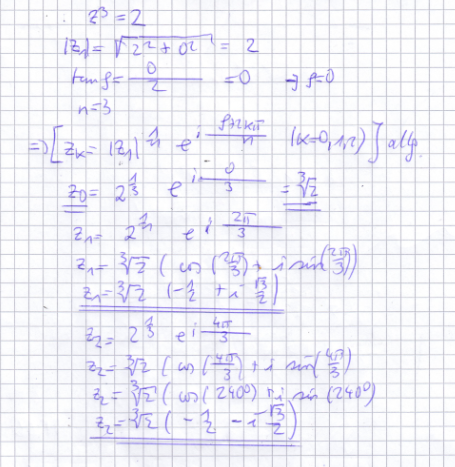 z³ = 2
|z₁| = √(2² + 0²) = 2
tan φ = 0/2 = 0 → φ = 0
n = 3
⇒ [z_K = |z₁|^(1/n) e^(i (φ+2Kπ)/n) (K = 0,1,2)] allg.
z₀ = 2^(1/3) e^(i 0/3) = ∛2
z₁ = 2^(1/n) e^(i 2π/3)
z₁ = ∛2 (cos(2π/3) + i sin(2π/3))
z₁ = ∛2 (-1/2 + i √3/2)
z₂ = 2^(1/3) e^(i 4π/3)
z₂ = ∛2 (cos(4π/3) + i sin(4π/3)
z₂ = ∛2 (cos(240°) + i sin(240°)
z₂ = ∛2 (-1/2 - i √3/2)